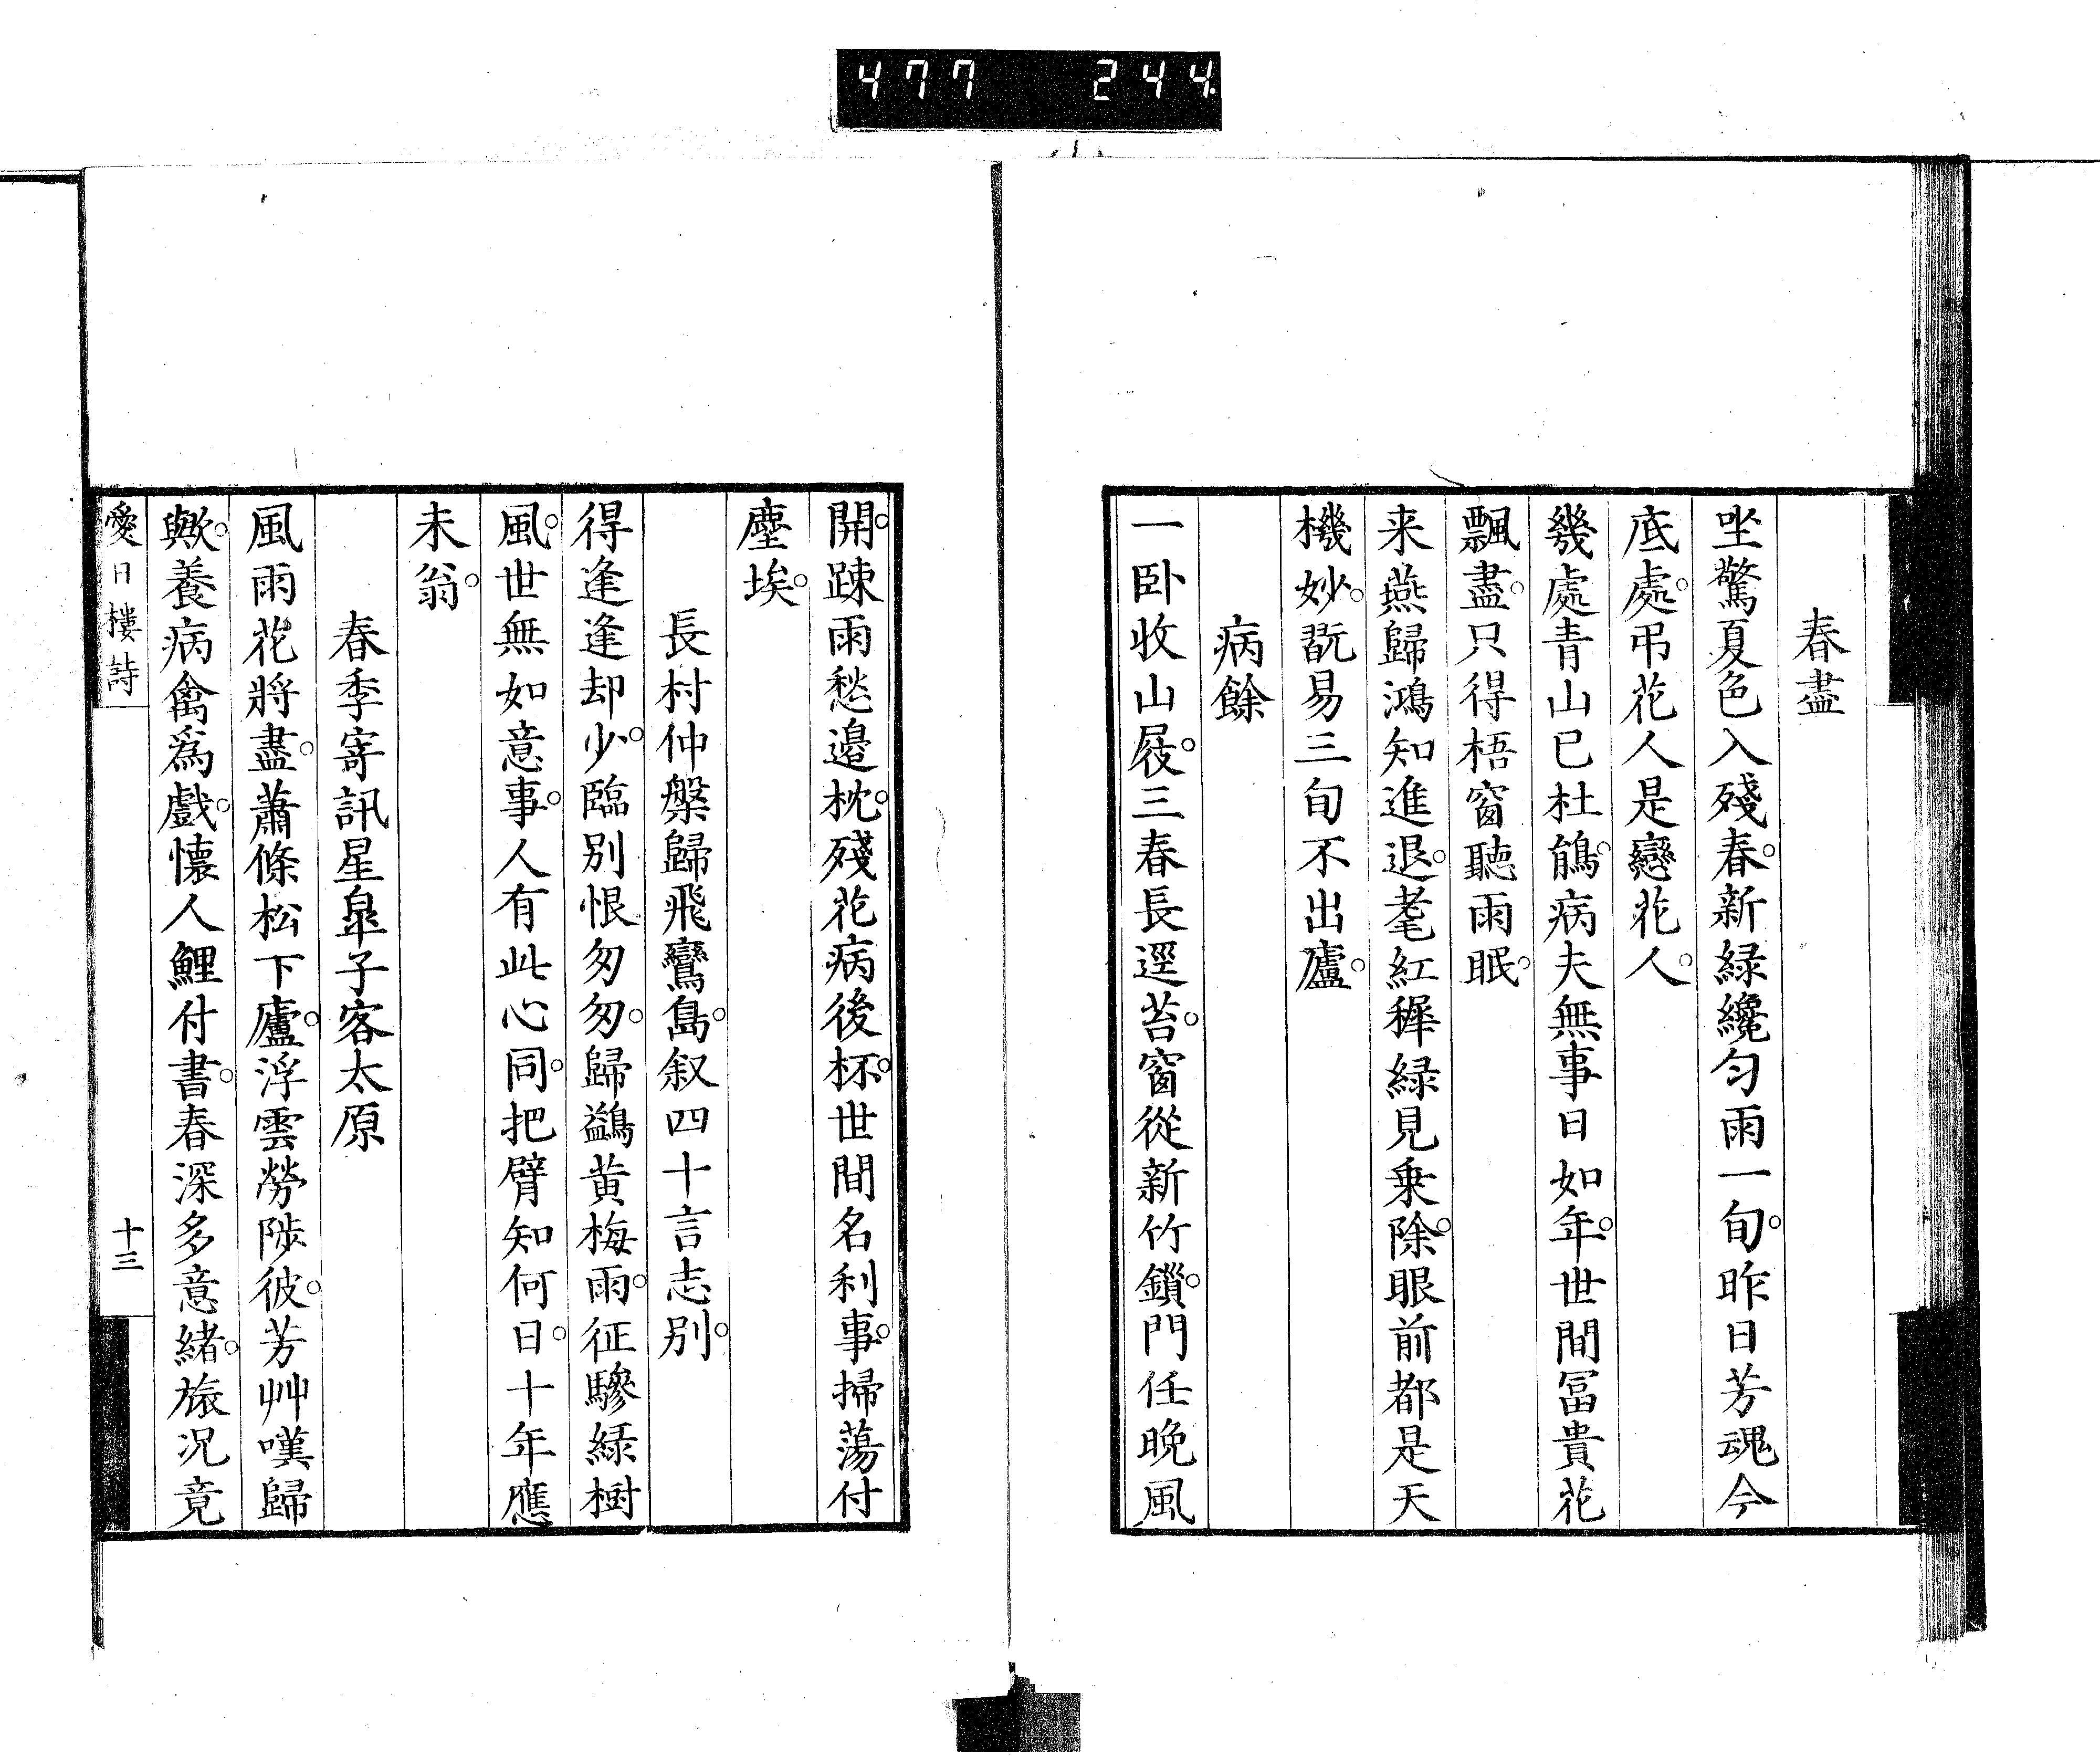 477 244
春盡
坐驚夏色入殘春。新緑纔匀雨一旬。昨日芳魂今
底處。弔花人是戀花人。
幾處青山已杜鵑。病夫無事日如年。世間冨貴花
飄盡。只得梧窗聽雨眠。
来燕歸鴻知進退。耄紅穉緑見乗除。眼前都是天
機妙。翫易三旬不出廬。
病餘
一卧收山屐。三春長逕苔。窗從新竹鎖。門任晩風
開。踈雨愁邉枕。殘花病後杯。世間名利事。掃蕩付
塵埃。
長村仲槃歸飛鸞島。叙四十言志別。
得逢逢却少。臨別恨匆匆。歸鷁黄梅雨。征驂緑樹
風。世無如意事。人有此心同。把臂知何日。十年應
未翁。
春季寄訊星皐子客太原
風雨花將盡。蕭條松下廬。浮雲勞陟彼。芳艸嘆歸
歟。養病禽爲戲。懷人鯉付書。春深多意緒。旅况竟
愛日樓詩 十三